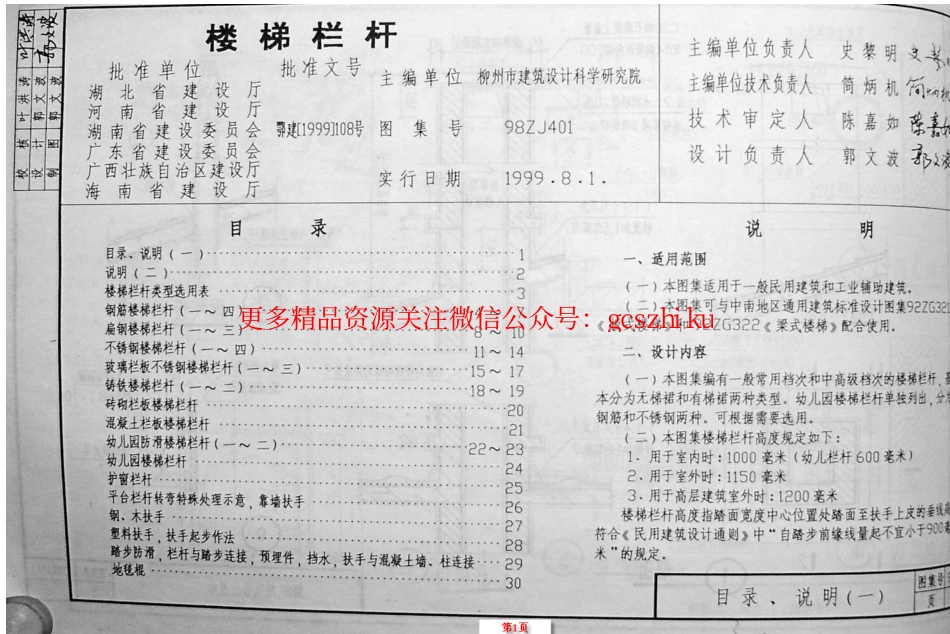 楼梯栏杆
批准单位
批准文号
湖北省建设厅
河南省建设厅
湖南省建设委员会
鄂建[1999]108号
广东省建设委员会
广西壮族自治区建设厅
海南省建设厅
主编单位 柳州市建筑设计科学研究院
图集号 98ZJ401
实行日期 1999.8.1.
主编单位负责人 史黎明
主编单位技术负责人 简炳机
技术审定人 陈嘉如
设计负责人 郭文波
校核 叶洪涛
设计 郭文波
制图 郭文波
目录
目录、说明(一) 1
说明(二) 2
楼梯栏杆类型选用表 3
钢筋楼梯栏杆(一~四)
扁钢楼梯栏杆(一~三) 8~10
不锈钢楼梯栏杆(一~四) 11~14
玻璃栏板不锈钢楼梯栏杆(一~三) 15~17
铸铁楼梯栏杆(一~二) 18~19
砖砌栏板楼梯栏杆 20
混凝土栏板楼梯栏杆 21
幼儿园防滑楼梯栏杆(一~二) 22~23
幼儿园楼梯栏杆 24
护窗栏杆 25
平台栏杆转弯特殊处理示意,靠墙扶手 26
钢、木扶手 27
塑料扶手,扶手起步作法 28
踏步防滑,栏杆与踏步连接,预埋件,挡水,扶手与混凝土墙、柱连接 29
地毯棍 30
更多精品资源关注微信公众号:gcszhiku
说明
一、适用范围
(一)本图集适用于一般民用建筑和工业辅助建筑。
(二)本图集可与中南地区通用建筑标准设计图集92ZG321
ZG322《梁式楼梯》配合使用。
二、设计内容
(一)本图集编有一般常用档次和中高级档次的楼梯栏杆,
本分为无梯裙和有梯裙两种类型。幼儿园楼梯栏杆单独列出,分
钢筋和不锈钢两种。可根据需要选用。
(二)本图集楼梯栏杆高度规定如下:
1、用于室内时:1000毫米(幼儿栏杆600毫米)
2、用于室外时:1150毫米
3、用于高层建筑室外时:1200毫米
楼梯栏杆高度指踏面宽度中心位置处踏面至扶手上皮的垂线
符合《民用建筑设计通则》中“自踏步前缘线量起不宜小于900毫
米”的规定。
目录、说明(一)
图集号
页
第1页